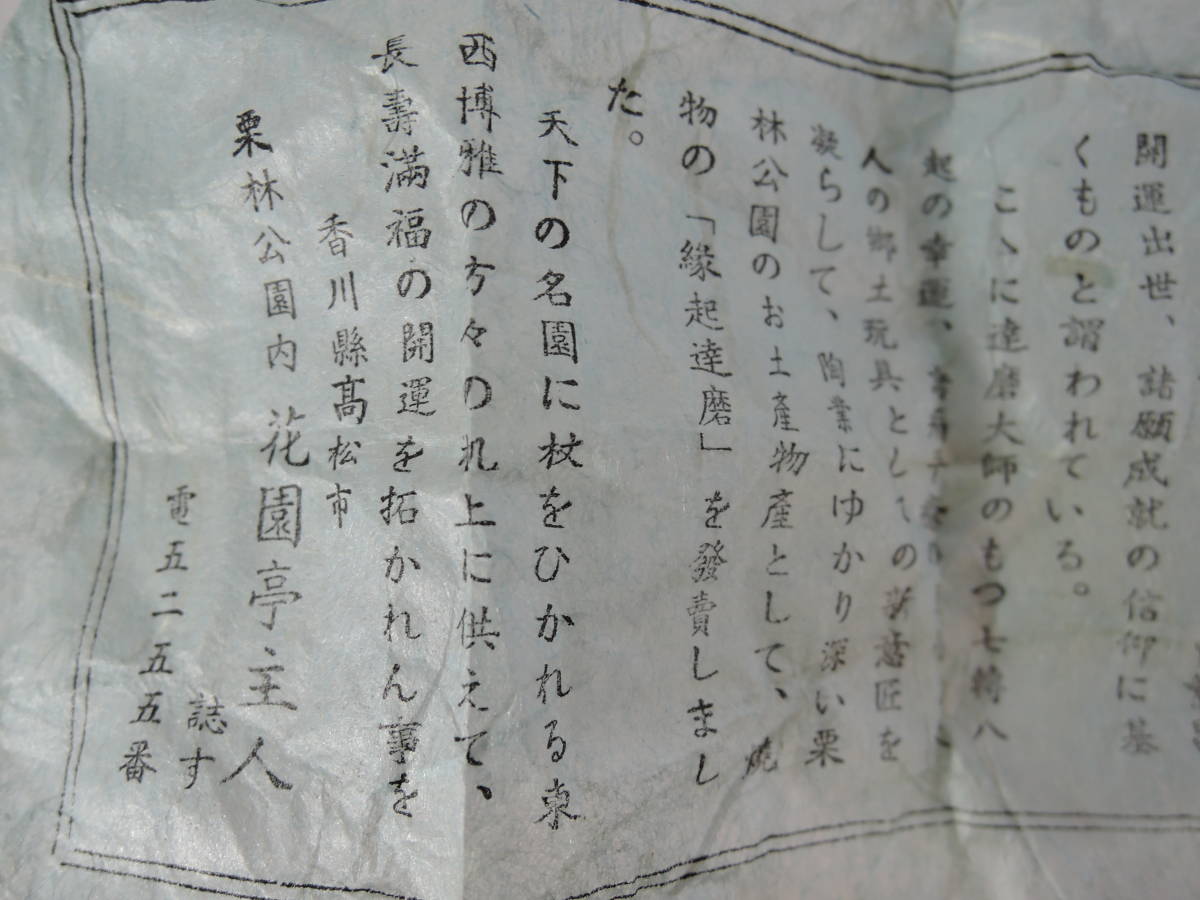 開運出世、諸願成就の信仰に基
くものと謂われている。
こゝに達磨大師のもつ七轉八
起の幸運、
人の郷土玩具としての新意匠を
凝らして、陶業にゆかり深い栗
林公園のお土産物産として、焼
物の「縁起達磨」を發賣しまし
た。
天下の名園に杖をひかれる東
西博雅の方々の机上に供えて、
長壽満福の開運を拓かれん事を
香川縣髙松市
栗林公園内 花園亭主人
誌す
電五二五五番